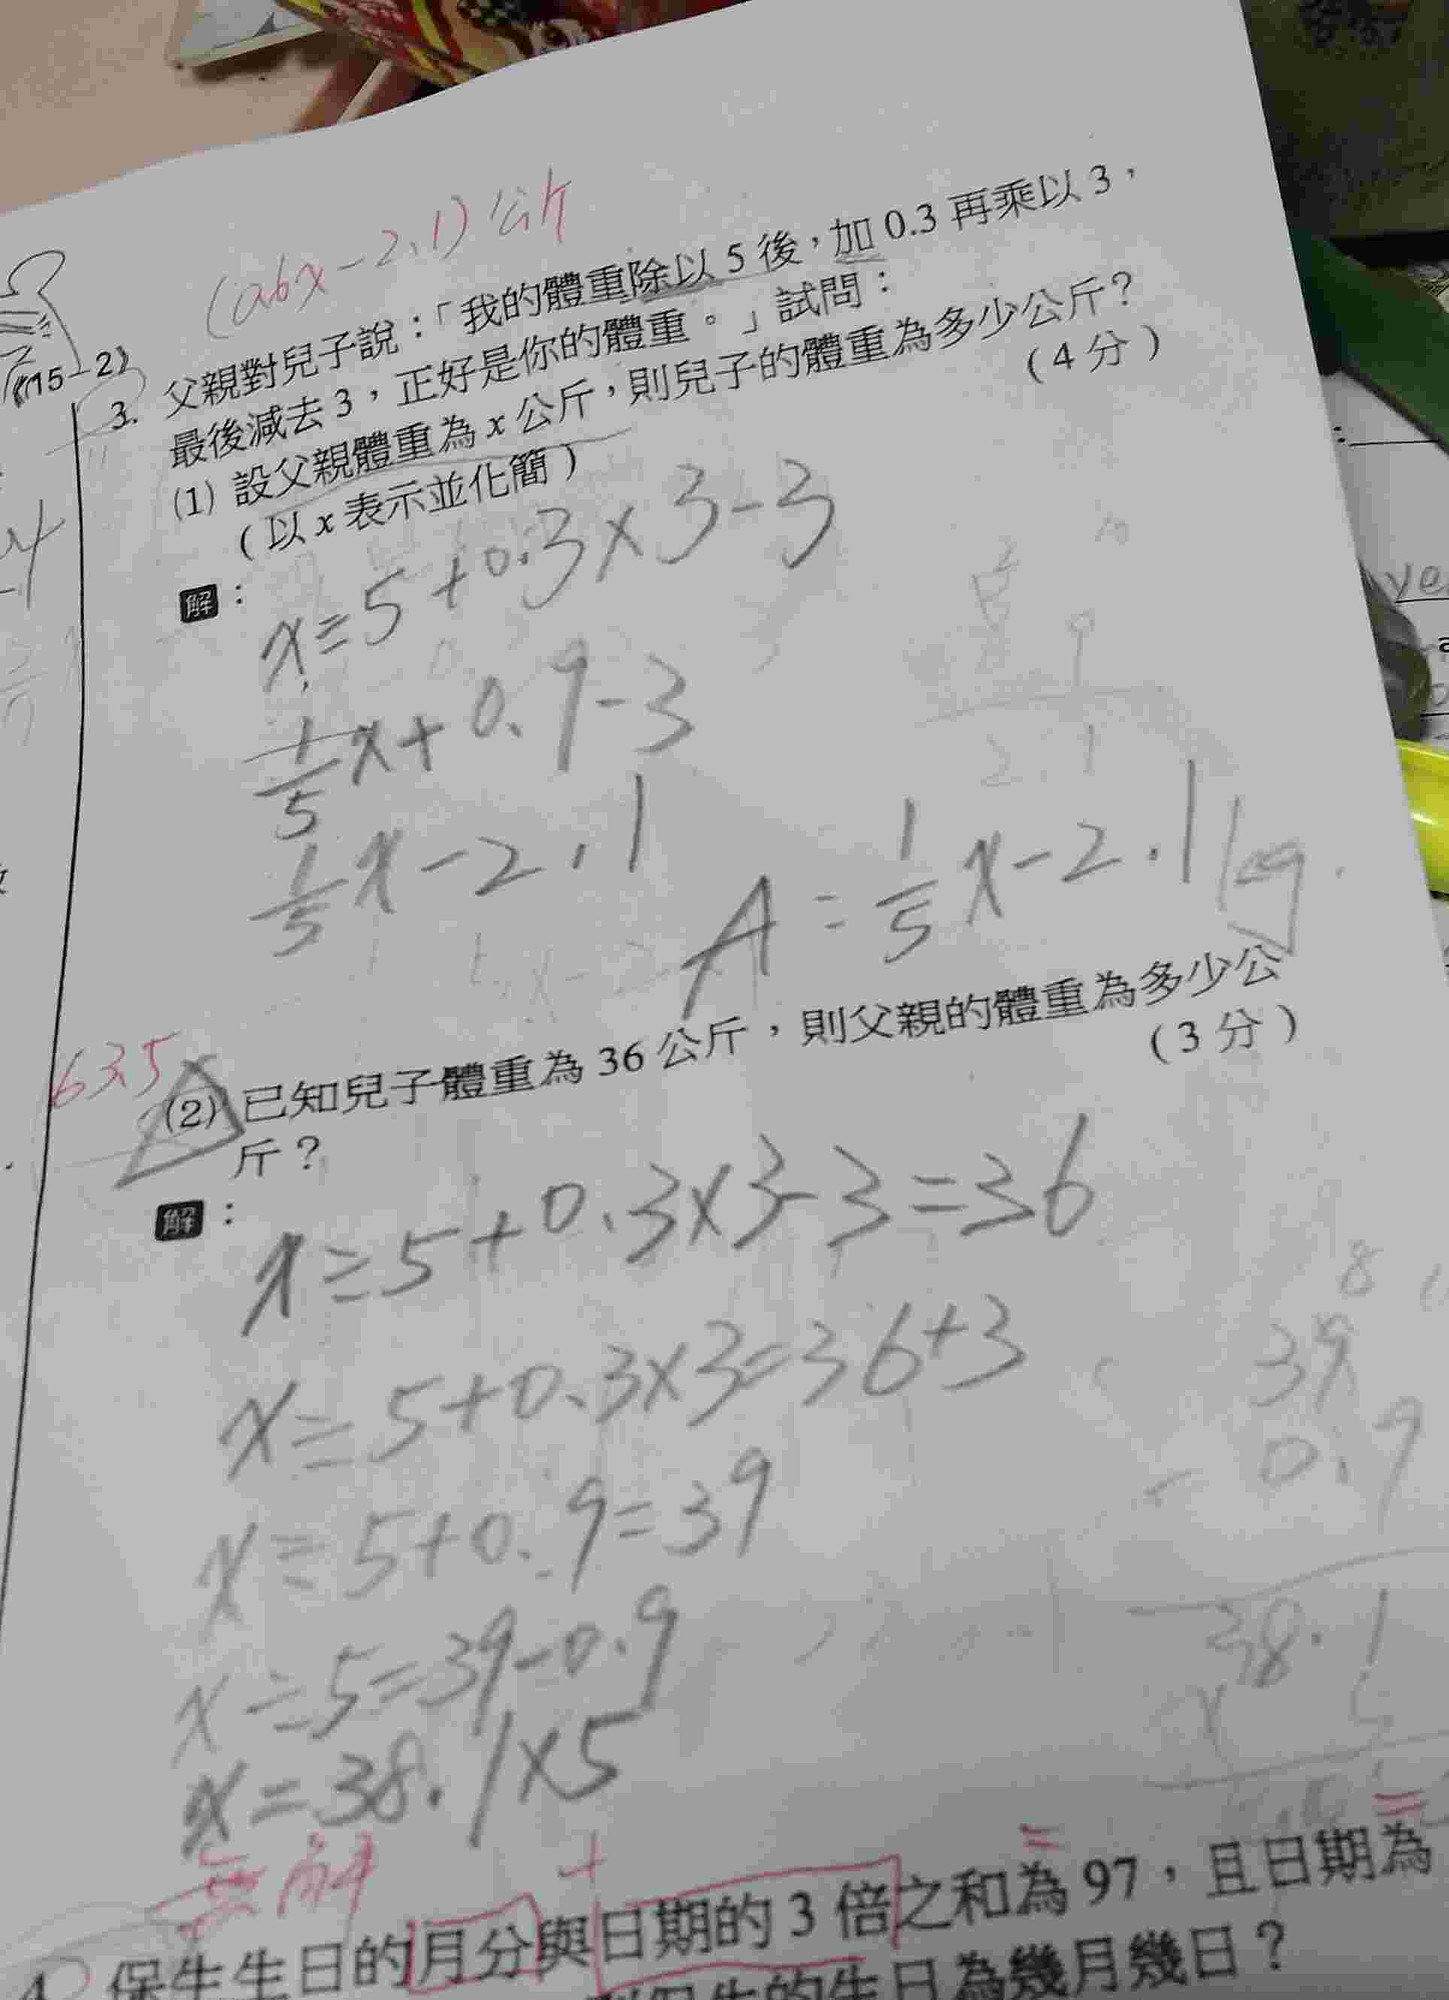 (0.6x-2.1)公斤
(15-2)
3. 父親對兒子說：「我的體重除以 5 後，加 0.3 再乘以 3，
最後減去 3，正好是你的體重。」試問：
(1) 設父親體重為 x 公斤，則兒子的體重為多少公斤？
(以 x 表示並化簡) (4 分)
解：
x÷5+0.3×3-3
1/5x+0.9-3
1/5x-2.1
A=1/5x-2.1kg
63.5
(2) 已知兒子體重為 36 公斤，則父親的體重為多少公
斤？ (3 分)
解：
x÷5+0.3×3-3=36
x÷5+0.3×3=36+3
x÷5+0.9=39
x÷5=39-0.9
x=38.1×5
39
- 0.9
38.1
x 5
無解
+ =
保生生日的月分與日期的 3 倍之和為 97，且日期為
生日為幾月幾日？